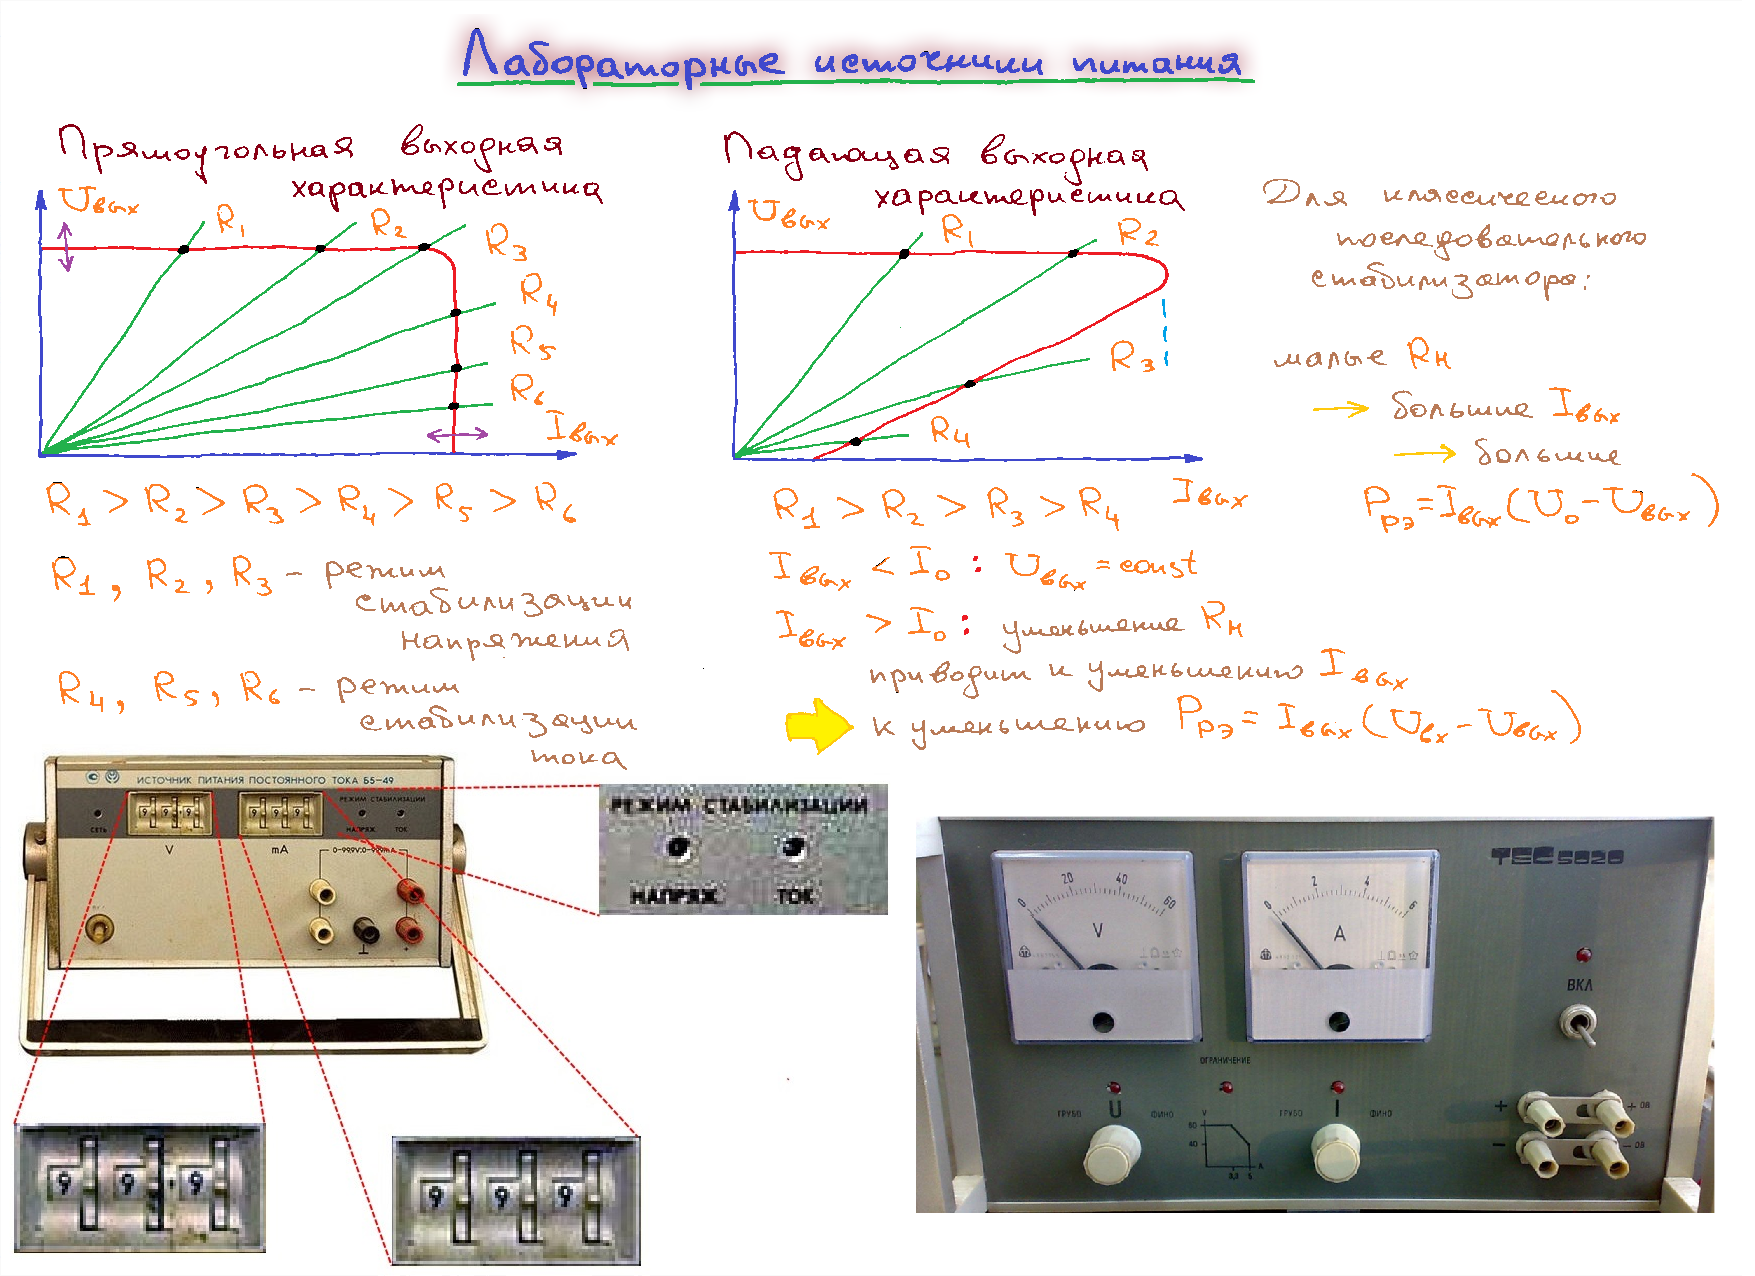 Лабораторные источники питания
Прямоугольная выходная
характеристика
Uвых
R1
R2
R3
R4
R5
R6
Iвых
R1 > R2 > R3 > R4 > R5 > R6
R1, R2, R3 – режим
стабилизации
напряжения
R4, R5, R6 – режим
стабилизации
тока
Падающая выходная
характеристика
Uвых
R1
R2
R3
R4
Iвых
R1 > R2 > R3 > R4
Iвых < I0 : Uвых = const
Iвых > I0 : уменьшение Rн
приводит к уменьшению Iвых
к уменьшению Pрэ = Iвых (Uвх – Uвых)
Для классического
последовательного
стабилизатора:
малые Rн
→ большие Iвых
→ большие
Pрэ = Iвых (U0 – Uвых)
ИСТОЧНИК ПИТАНИЯ ПОСТОЯННОГО ТОКА Б5-49
РЕЖИМ СТАБИЛИЗАЦИИ
9 9 9
9 9 9
СЕТЬ
НАПРЯЖ ТОК
V
mA
0-99,9V;0-999mA
- ⊥ +
РЕЖИМ СТАБИЛИЗАЦИИ
НАПРЯЖ. ТОК
9 9 . 9
9 9 9
TEC 5020
0 20 40 60
V
0 2 4 6
A
ВКЛ
ОГРАНИЧЕНИЕ
ГРУБО U ФИНО
V
60
40
3,3 5 A
ГРУБО I ФИНО
+ + ОВ
- - ОВ